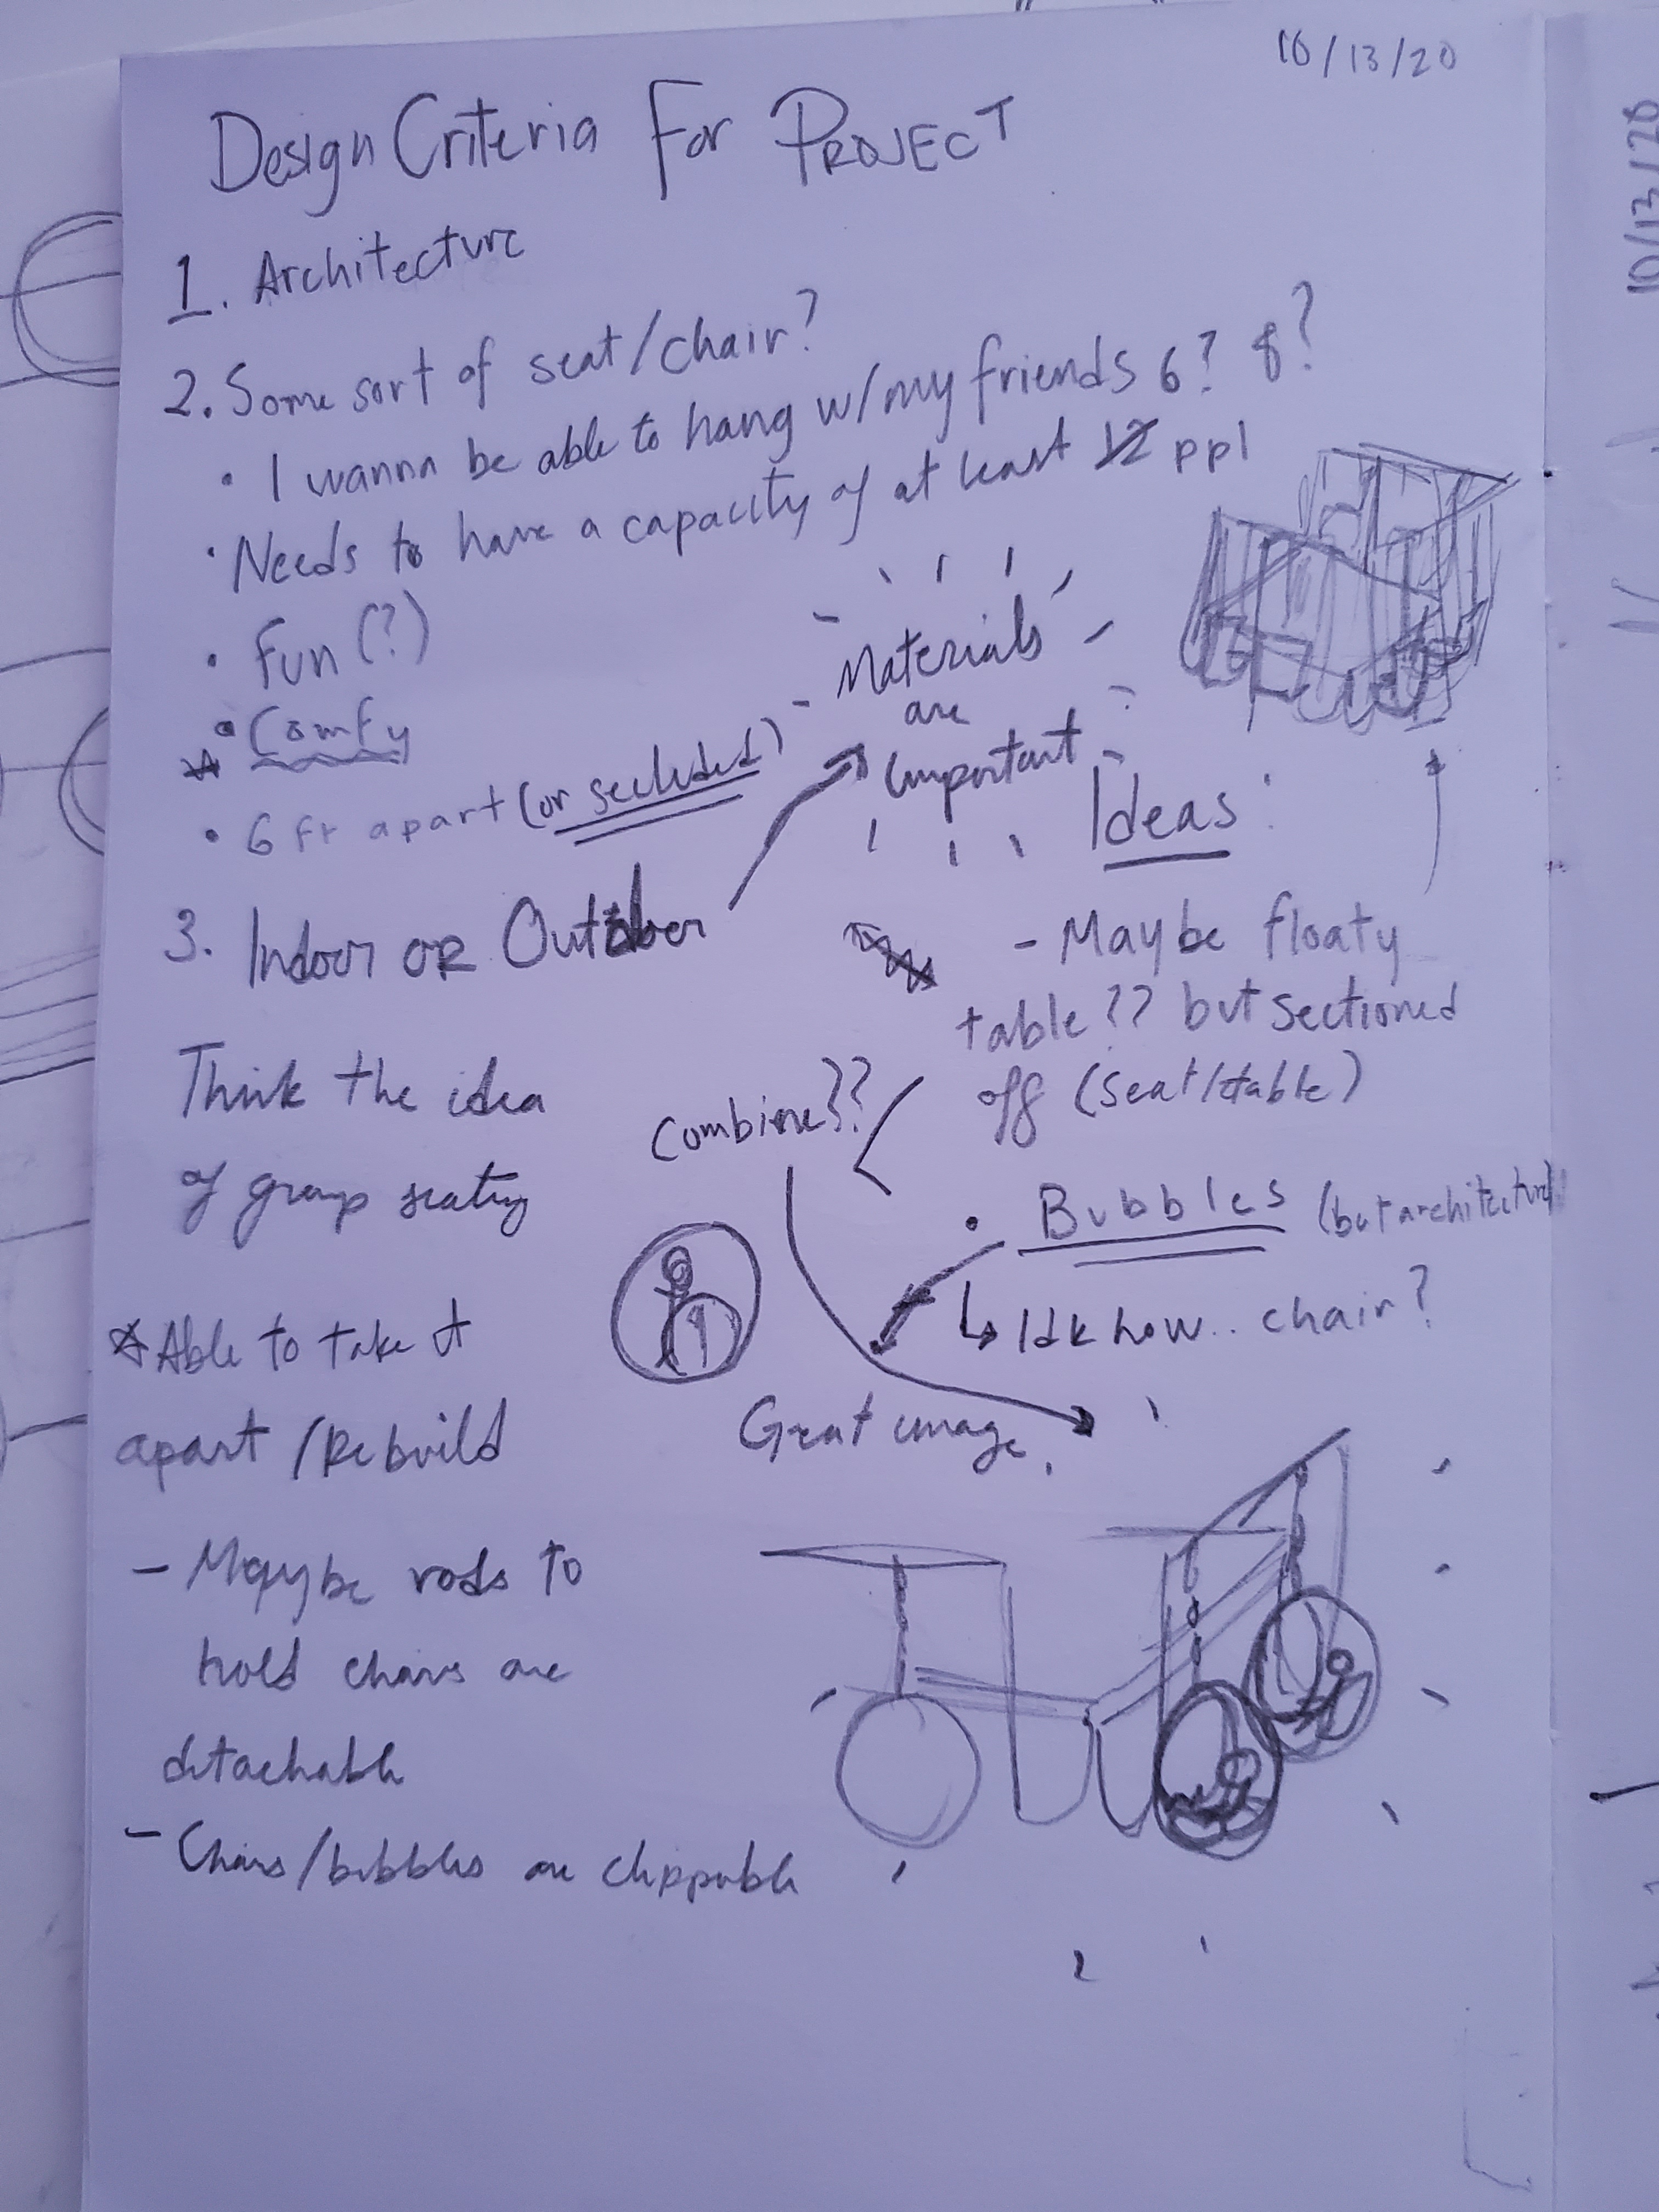 10/13/20
Design Criteria For PROJECT
1. Architecture
2. Some sort of seat/chair?
• I wanna be able to hang w/my friends 6? 8?
• Needs to have a capacity of at least 12 ppl
• Fun (?)
• Comfy
• 6 ft apart (or secluded)
Materials
are
important
3. Indoor OR Outdoor
Ideas:
- Maybe floaty
table?? but sectioned
off (seat/table)
Combine??
• Bubbles (but architecture)
↳ Idk how.. chair?
Great image.
Think the idea
of group seating
☆ Able to take it
apart / Rebuild
- Maybe rods to
hold chairs are
detachable
- Chairs/bubbles are clippable
10/13/20